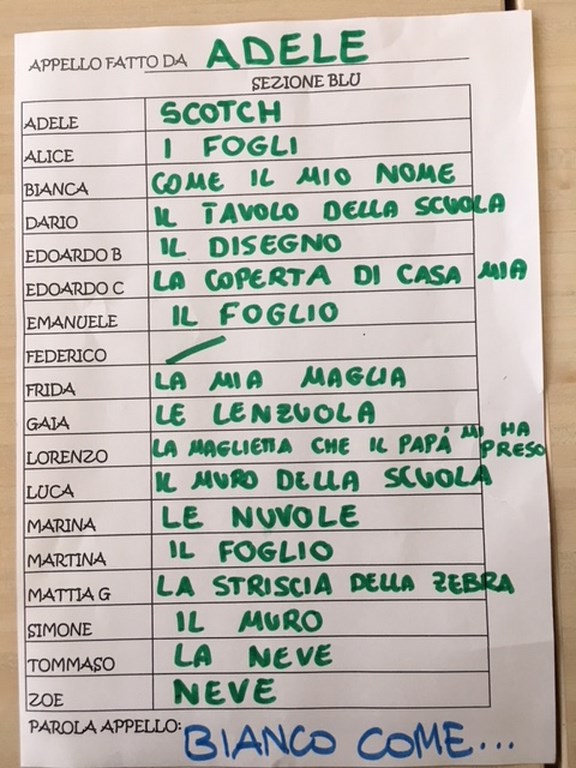 APPELLO FATTO DA ADELE
SEZIONE BLU
ADELE SCOTCH
ALICE I FOGLI
BIANCA COME IL MIO NOME
DARIO IL TAVOLO DELLA SCUOLA
EDOARDO B IL DISEGNO
EDOARDO C LA COPERTA DI CASA MIA
EMANUELE IL FOGLIO
FEDERICO /
FRIDA LA MIA MAGLIA
GAIA LE LENZUOLA
LORENZO LA MAGLIETTA CHE IL PAPÁ MI HA PRESO
LUCA IL MURO DELLA SCUOLA
MARINA LE NUVOLE
MARTINA IL FOGLIO
MATTIA G LA STRISCIA DELLA ZEBRA
SIMONE IL MURO
TOMMASO LA NEVE
ZOE NEVE
PAROLA APPELLO: BIANCO COME...